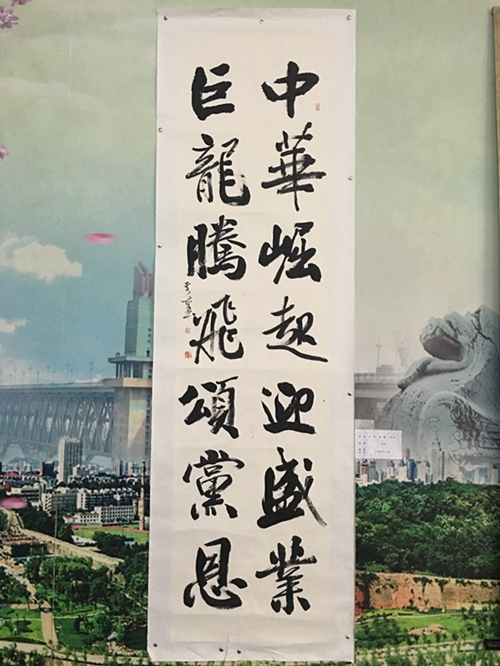 中華崛起迎盛業
巨龍騰飛頌黨恩